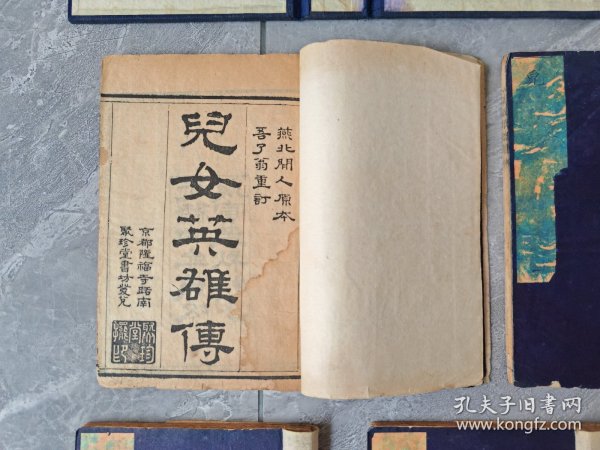 燕北閒人原本
吾了翁重訂
兒女英雄傳
京都隆福寺路南
聚珍堂書坊發兌
聚珍
堂
孔夫子旧书网
www.kongfz.com